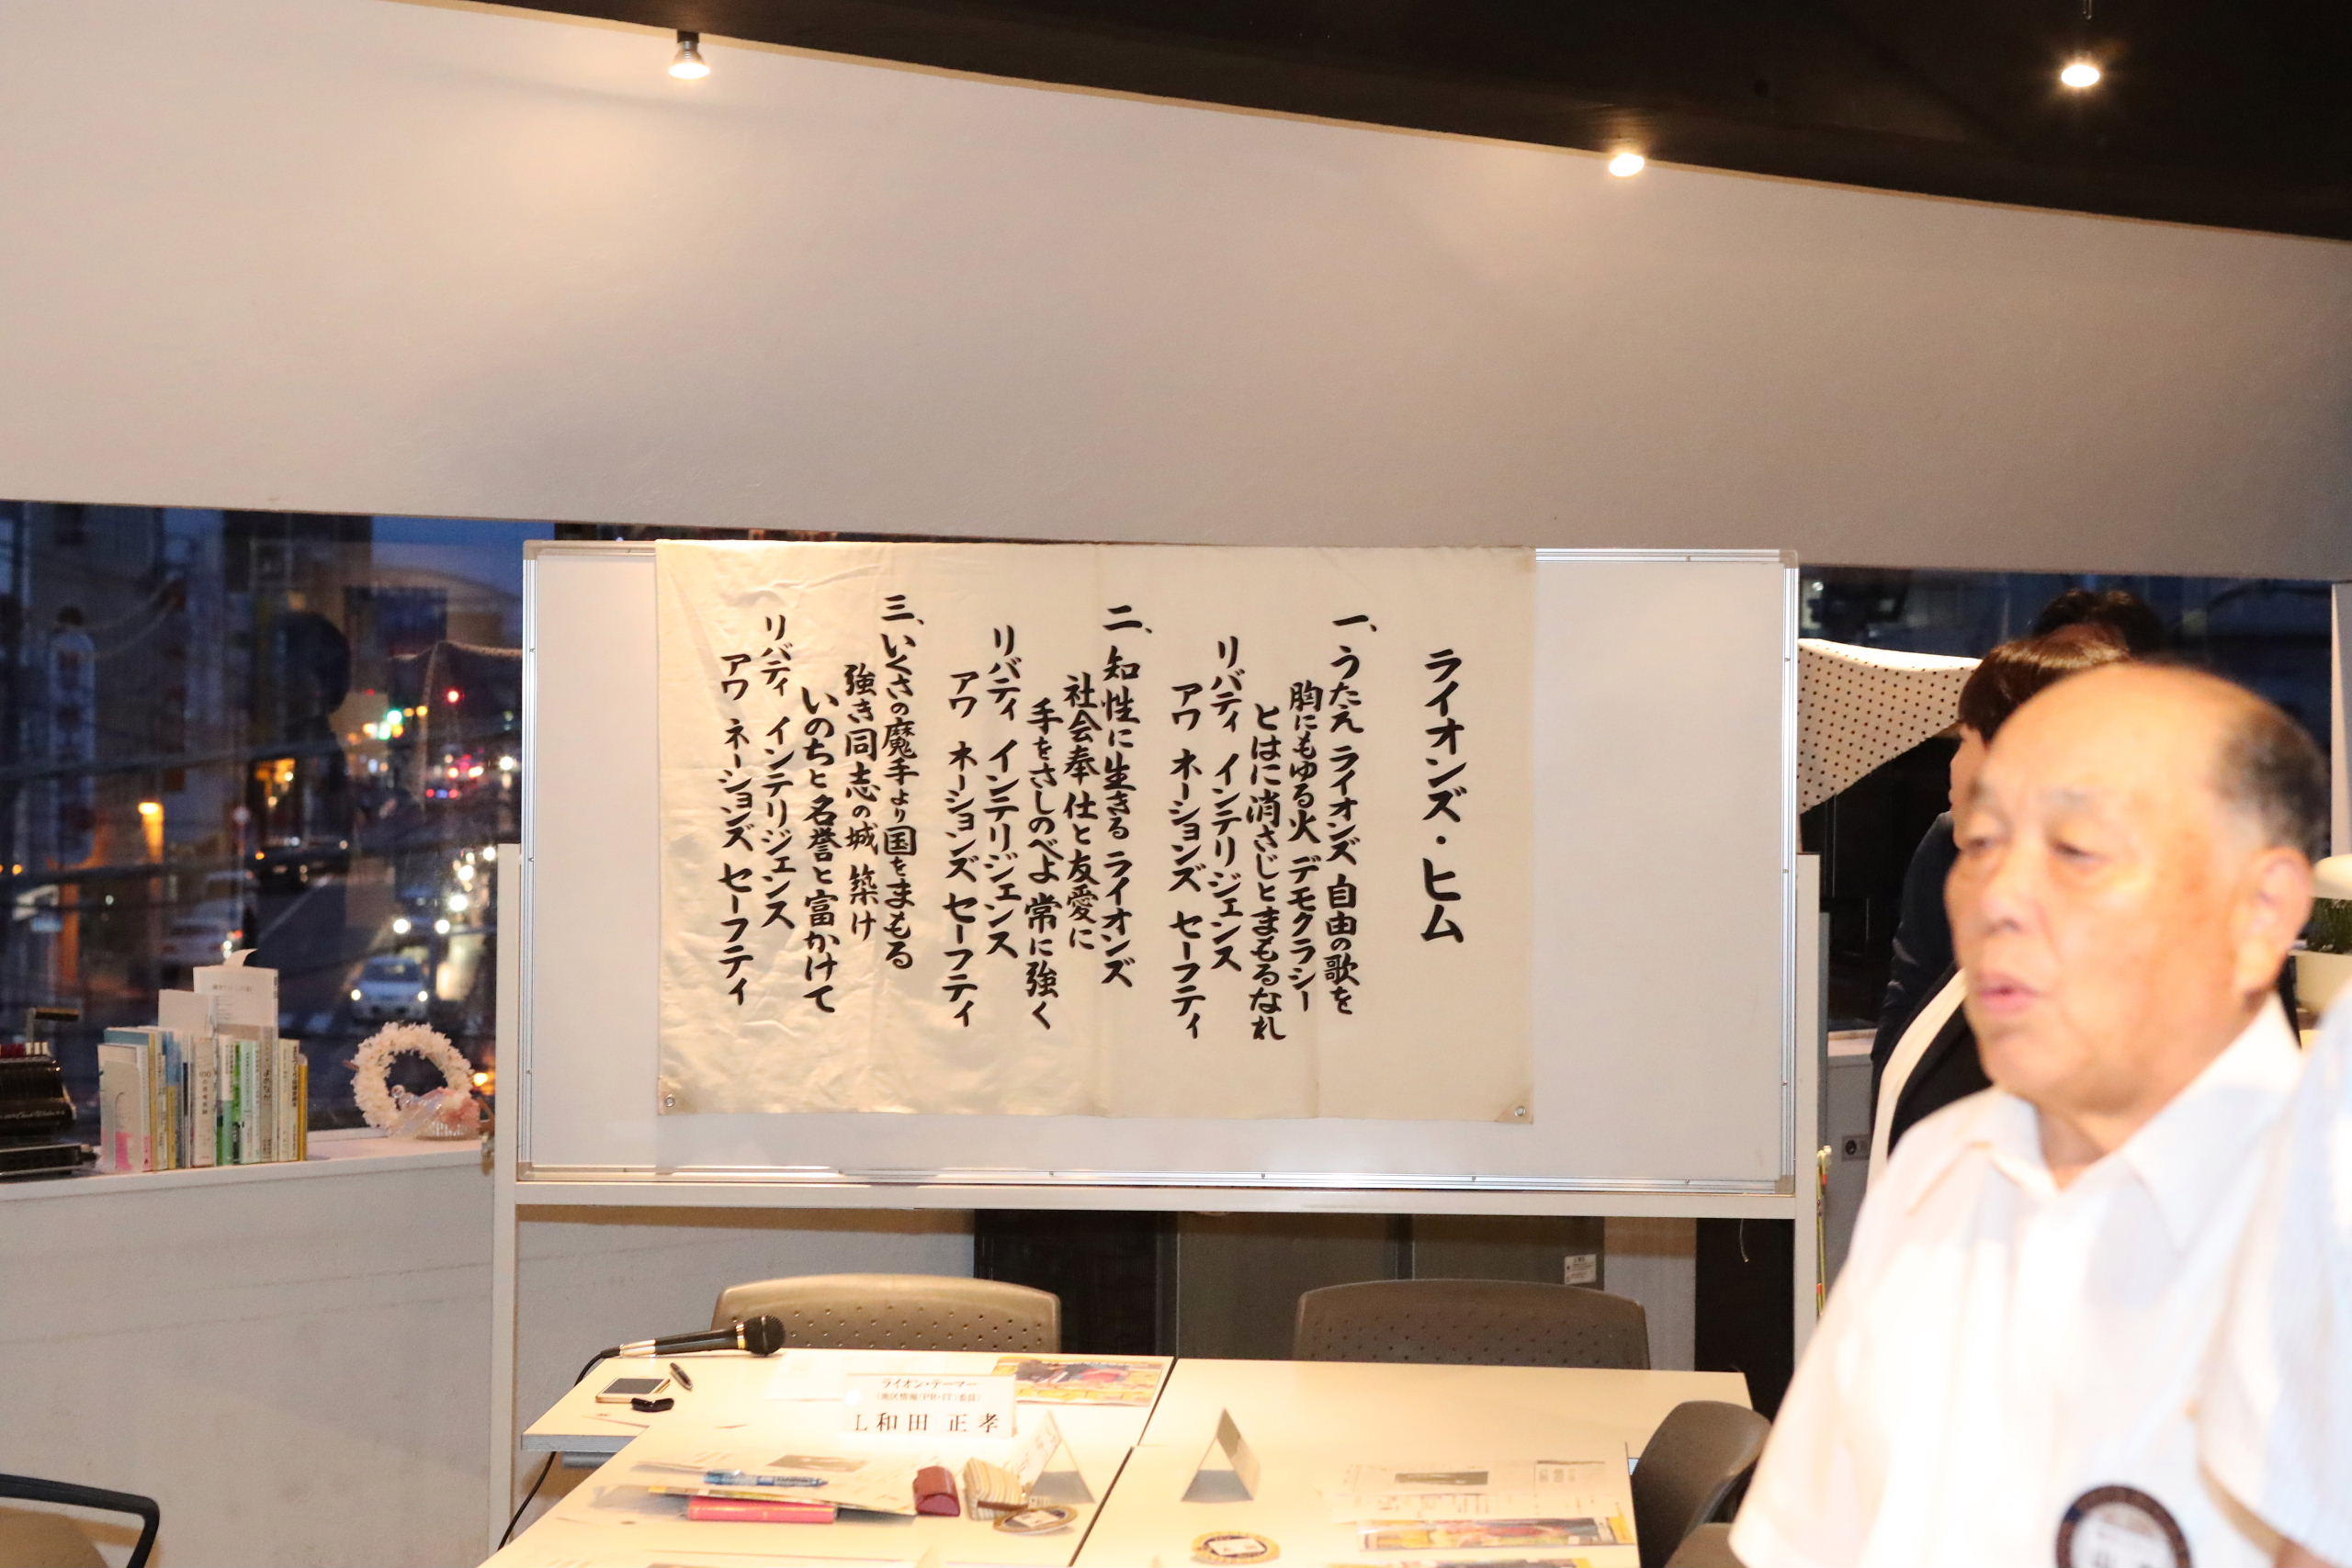 ライオンズ・ヒム
一、うたえ ライオンズ 自由の歌を
胸にもゆる火 デモクラシー
とはに消さじとまもるなれ
リバティ インテリジェンス
アワ ネーションズ セーフティ
二、知性に生きる ライオンズ
社会奉仕と友愛に
手をさしのべよ 常に強く
リバティ インテリジェンス
アワ ネーションズ セーフティ
三、いくさの魔手より国をまもる
強き同志の城 築け
いのちと名誉と富かけて
リバティ インテリジェンス
アワ ネーションズ セーフティ
ライオン・テーマー
(地区情報(PR・IT)委員)
L 和田 正孝